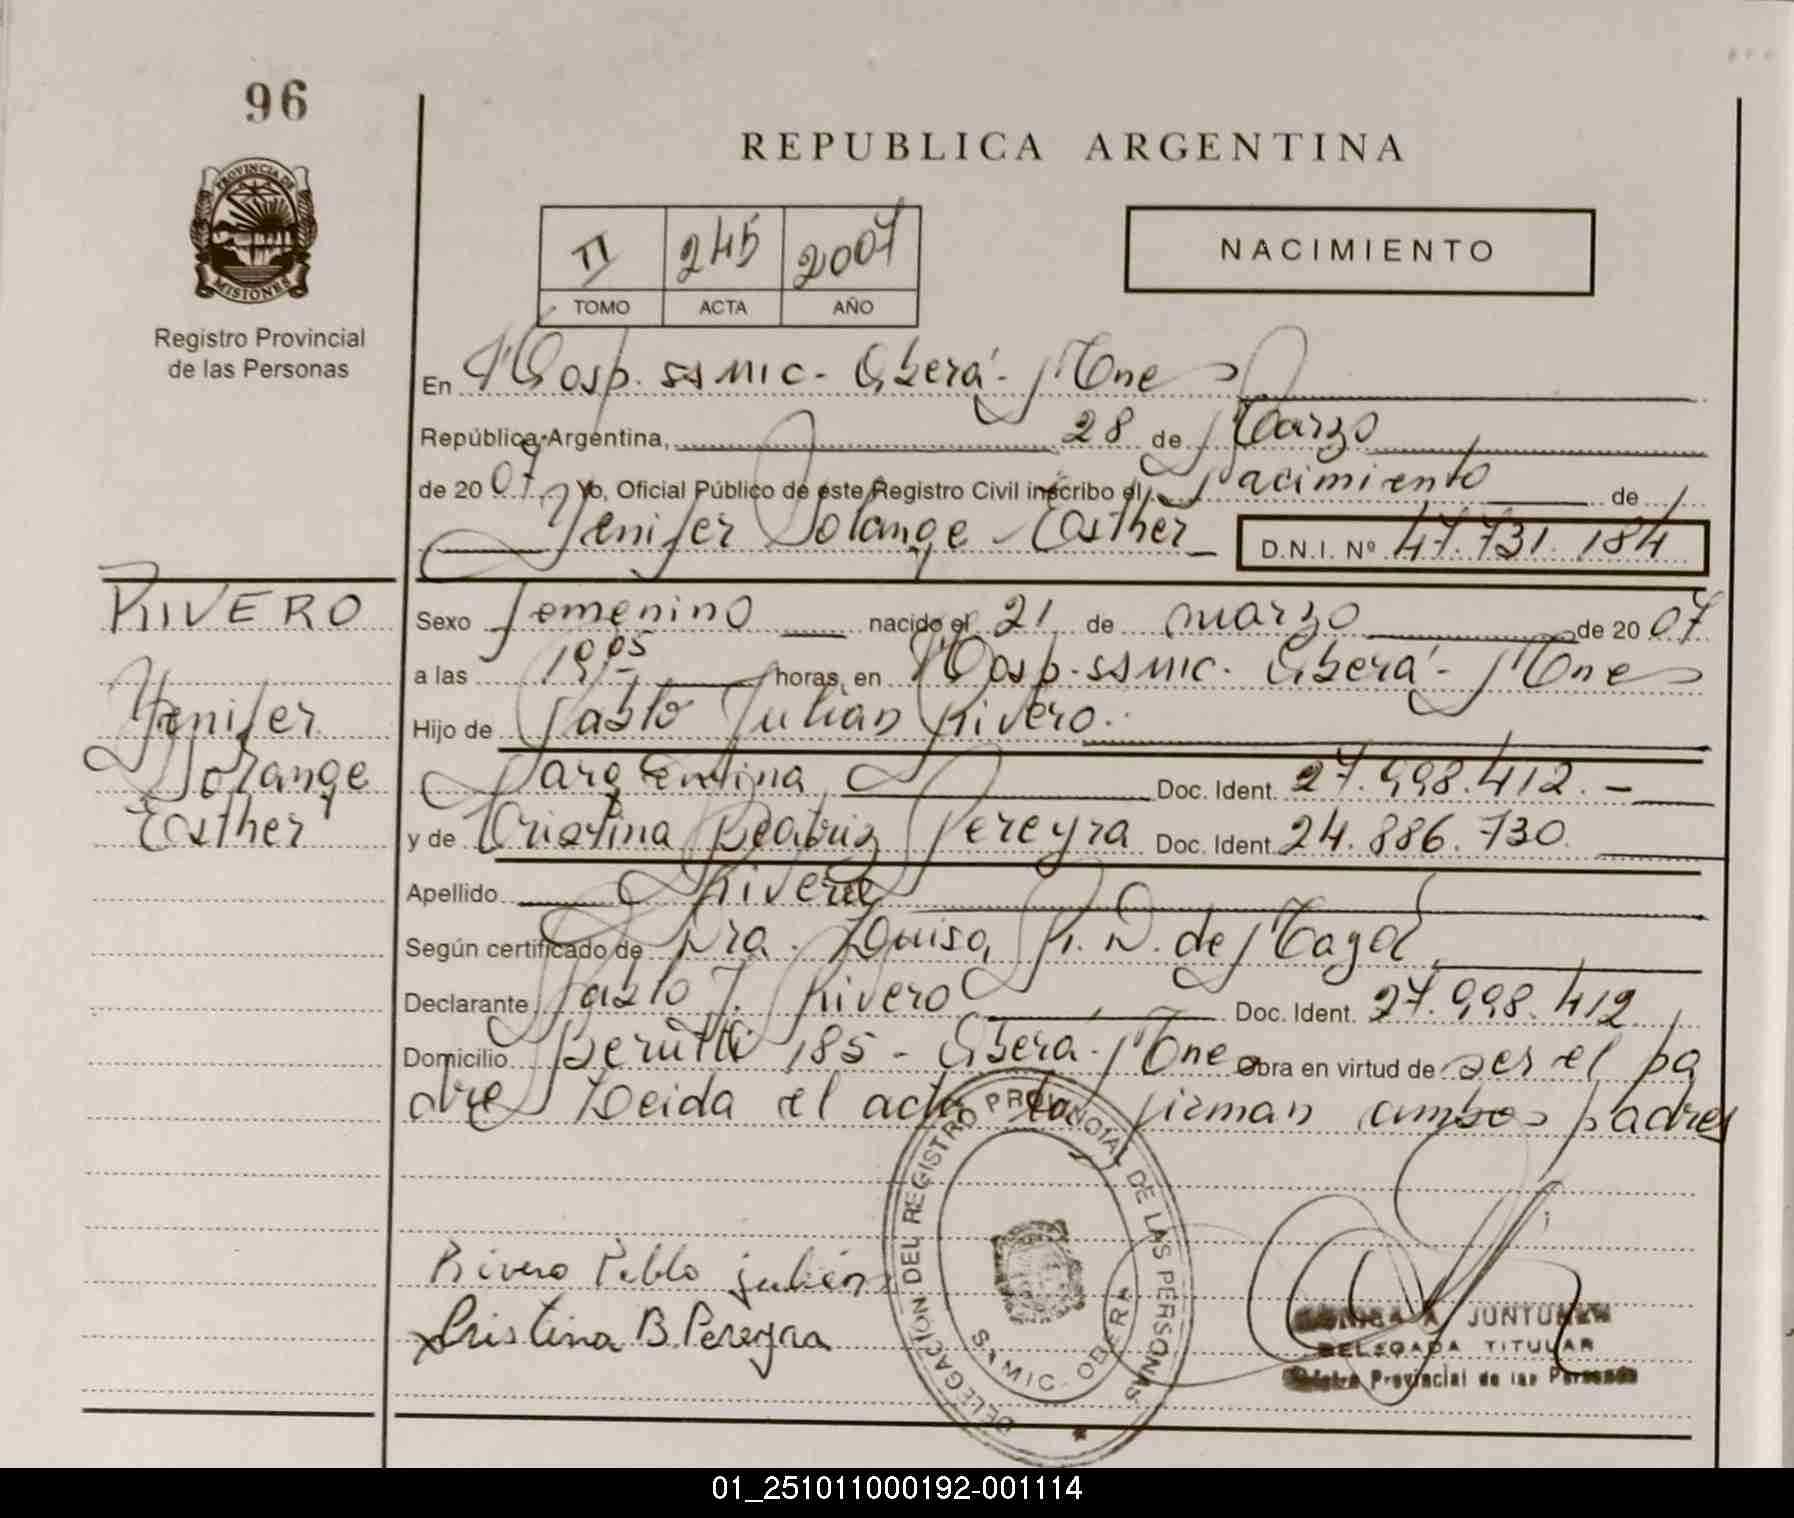 96
REPUBLICA ARGENTINA
PROVINCIA DE
MISIONES
Registro Provincial
de las Personas
II 245 2007
TOMO ACTA AÑO
NACIMIENTO
En Hosp. SAMIC - Oberá - Mnes
República Argentina, 28 de Marzo
de 2007 Yo, Oficial Público de este Registro Civil inscribo el Nacimiento de
Yenifer Solange Esther D.N.I. Nº 47.731.184
RIVERO
Yenifer
Solange
Esther
Sexo femenino nacido el 21 de marzo de 2007
a las horas, en Hosp. SAMIC. Oberá - Mnes
Hijo de Pablo Julian Rivero.
argentina Doc. Ident. 27.998.412.-
y de Cristina Beatriz Pereyra Doc. Ident. 24.886.730.
Apellido Rivero
Según certificado de Dra. Luisa R. D. de
Declarante Pablo J. Rivero Doc. Ident. 27.998.412
Domicilio Berutti 185 - Oberá - Mnes Obra en virtud de ser el pa
dre Leida el acta la firman ambos padres
DELEGACION DEL REGISTRO PROVINCIAL DE LAS PERSONAS
SAMIC - OBERA
Rivero Pablo julián
Cristina B. Pereyra
DELEGADA TITULAR
Provincial de las Personas
01_251011000192-001114